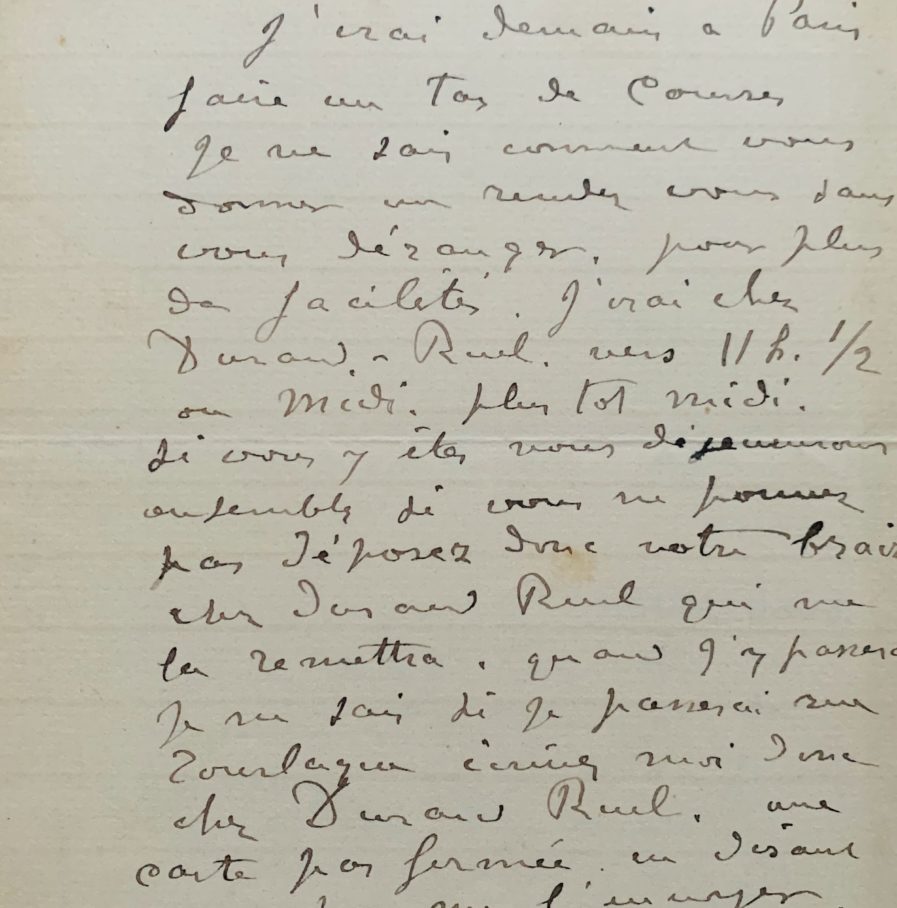 J'irai demain a Paris
faire un tas de Courses
Je ne sais comment vous
donner un rendez vous sans
vous déranger. pour plus
de facilités. J'irai chez
Durand-Ruel. vers 11 h. 1/2
ou Midi. plus tot midi.
si vous y êtes nous déjeunerons
ensemble si vous ne pouvez
pas déposez donc votre
chez Durand Ruel qui me
la remettra. quand j'y passerai
Je ne sais si je passerai rue
Tourlaque écrivez moi donc
chez Durand Ruel. une
carte pas fermée en disant
de me l'envoyer.